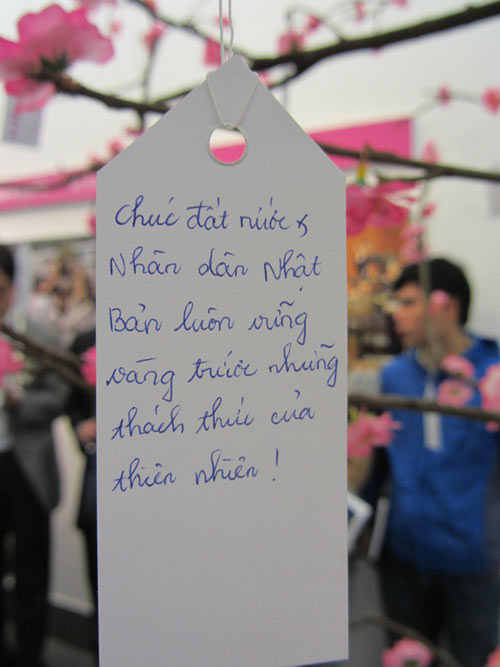 Chúc đất nước &
Nhân dân Nhật
Bản luôn vững
vàng trước những
thách thức của
thiên nhiên !